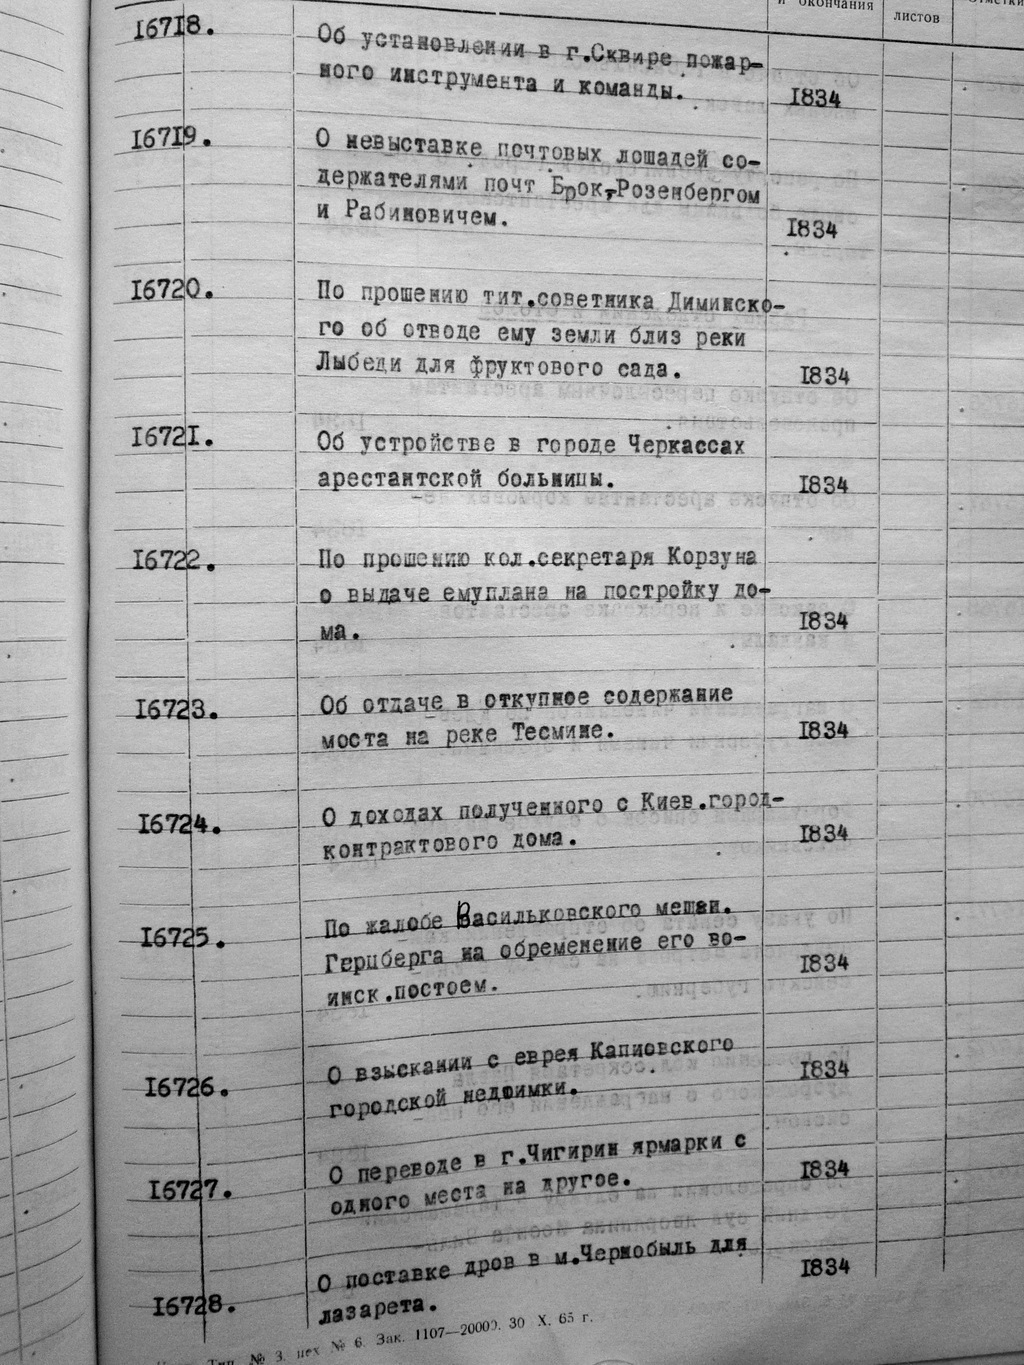 и окончания
листов
16718.
Об установлении в г.Сквире пожар-
ного инструмента и команды.
1834
16719.
О невыставке почтовых лошадей со-
держателями почт Брок,Розенбергом
и Рабиновичем.
1834
16720.
По прошению тит.советника Диминско-
го об отводе ему земли близ реки
Лыбеди для фруктового сада.
1834
16721.
Об устройстве в городе Черкассах
арестантской больницы.
1834
16722.
По прошению кол.секретаря Корзуна
о выдаче емуплана на постройку до-
ма.
1834
16723.
Об отдаче в откупное содержание
моста на реке Тесмине.
1834
16724.
О доходах полученного с Киев.город-
контрактового дома.
1834
16725.
По жалобе Васильковского мещан.
Герцберга на обременение его во-
инск.постоем.
1834
16726.
О взыскании с еврея Капиовского
городской недоимки.
1834
16727.
О переводе в г.Чигирин ярмарки с
одного места на другое.
1834
16728.
О поставке дров в м.Чернобыль для
лазарета.
1834
Тип. № 3. цех № 6. Зак. 1107—20000. 30 X. 65 г.